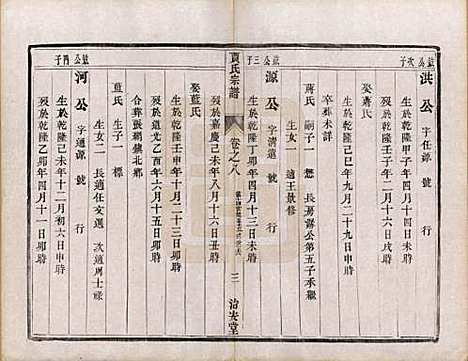 茲公次子
洪公 字任源 號 行
生於乾隆甲子年四月十三日未時
歿於乾隆己卯年二月十六日戌時
娶蕭氏
生於乾隆己巳年九月二十九日申時
卒葬未詳
蔣氏 嗣子一 恩 長房壽公第五子承繼
生女一 適王景修
茲公三子
源公 字清遠 號 行
生於乾隆丁卯年四月十三日未時
歿於嘉慶己未年八月十六日丑時
娶藍氏
生於乾隆壬申年十月二十三日卯時
歿於道光乙酉年六月十五日卯時
合葬張網鎮北鄉
藍氏 生子一 標
生女二 長適任文選 次適周士祿
茲公四子
河公 字通源 號 行
生於乾隆己未年十二月初六日申時
歿於乾隆乙卯年四月十一日卯時
賈氏宗譜
卷之八
三
治安堂